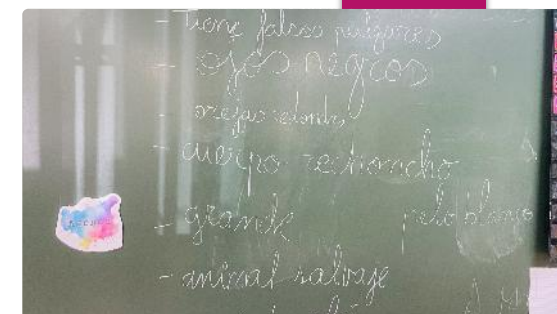 - Tiene falsos pulgares
- ojos negros
- orejas redondas
- cuerpo rechoncho
- grande
pelo blanco
- animal salvaje